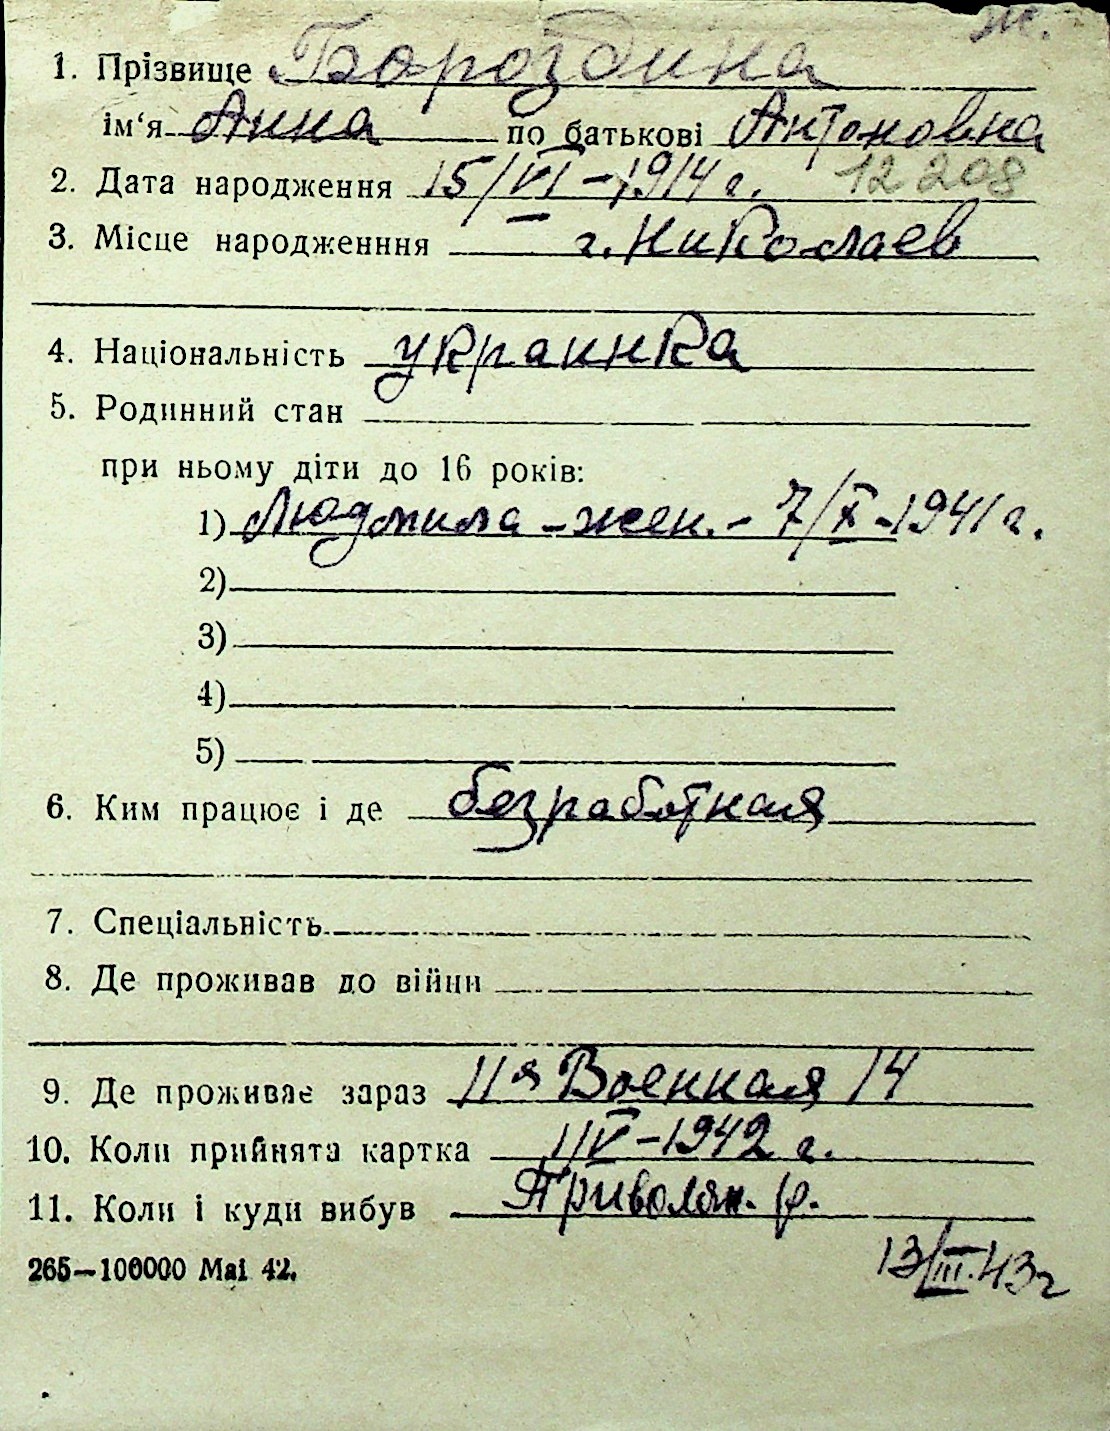 ж.
1. Прізвище Бороздина
ім'я Анна по батькові Антоновна
2. Дата народження 15/VI-1914 г. 12208
3. Місце народженння г. Николаев
4. Національність украинка
5. Родинний стан
при ньому діти до 16 років:
1) Людмила - жен. - 7/X-1941 г.
2)
3)
4)
5)
6. Ким працює і де безработная
7. Спеціальність
8. Де проживав до війни
9. Де проживає зараз 11я Военная 14
10. Коли прийнята картка 1/V-1942 г.
11. Коли і куди вибув Приволян. р.
265—100000 Mai 42.
13/III.43г